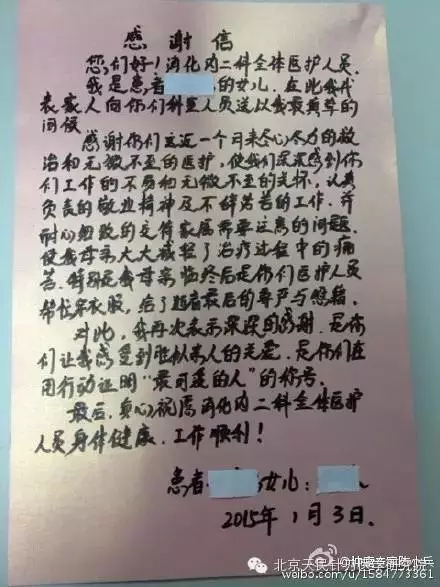 感谢信
您们好！消化内二科全体医护人员.
我是患者 的女儿. 在此我代
表家人向你们科室人员送以我最真挚的
问候
感谢你们这近一个月来尽心尽力的救
治和无微不至的医护，使我们深深感到你
们工作的不易和无微不至的关怀，认真
负责的敬业精神及不辞劳苦的工作. 并
耐心细致的交待家属需要注意的问题.
使我母亲大大减轻了治疗过程中的痛
苦. 特别是我母亲临终后是你们医护人员
帮忙穿衣服，给了逝者最后的尊严与慰藉.
对此，我再次表示深深的感谢. 是你
们让我感受到胜似亲人的关爱. 是你们在
用行动证明“最可爱的人”的称号.
最后. 真心祝愿消化内二科全体医护
人员身体健康. 工作顺利！
患者 女儿:
2015年1月3日.
北京天民针刀医学研究院
@
weibo.com/u/1584773361